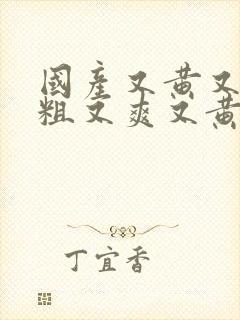 國産又黄又
粗又爽又黄
丁宜香